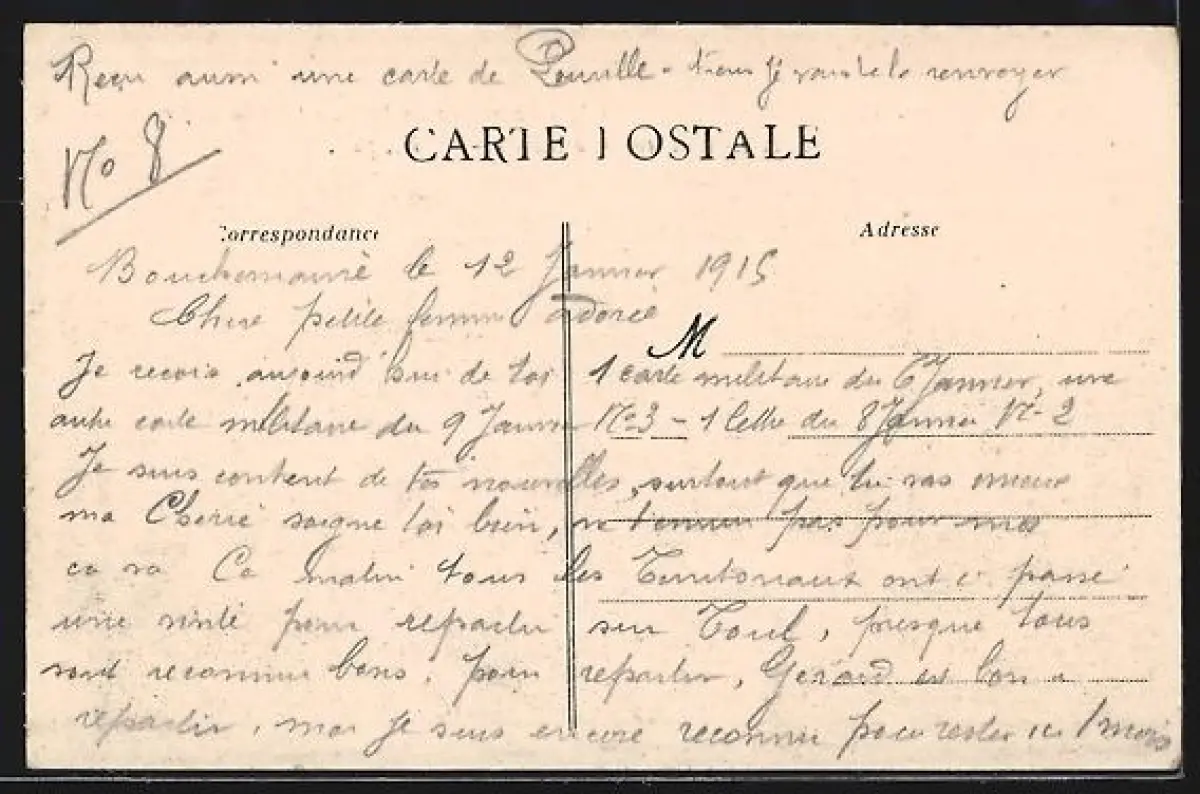 Reçu aussi une carte de je vais te la renvoyer
No 8
CARTE POSTALE
Correspondance
Adresse
Bouchemaine le 12 Janvier 1915
Chere petite femme adorée
M
Je recois aujourd'hui de toi 1 carte militaire du 6 Janvier, une
autre carte militaire du 9 Janvier No 3 - 1 lettre du 8 Janvier No 2
Je suis content de tes nouvelles, surtout que tu vas mieux
ma Cherie soigne toi bien, ne t'ennuie pas pour moi
ca va Ce matin tous les Territoriaux ont passé
une visite pour repartir sur Toul, presque tous
sont reconnus bons pour repartir, Gérard est bon a
repartir, moi je suis encore reconnu pour rester ici 1 mois